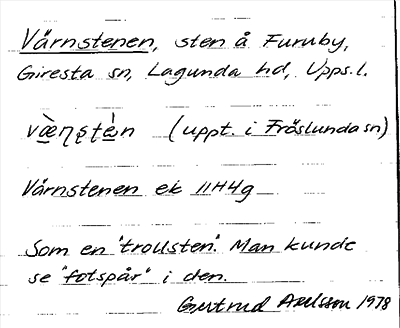 Värnstenen, sten å Furuby,
Giresta sn, Lagunda hd, Upps. l.
væ̀ṇṣṭèn (uppt. i Fröslunda sn)
Värnstenen ek 11H4g
Som en "trollsten". Man kunde
se "fotspår" i den.
Gertrud Axelsson 1978